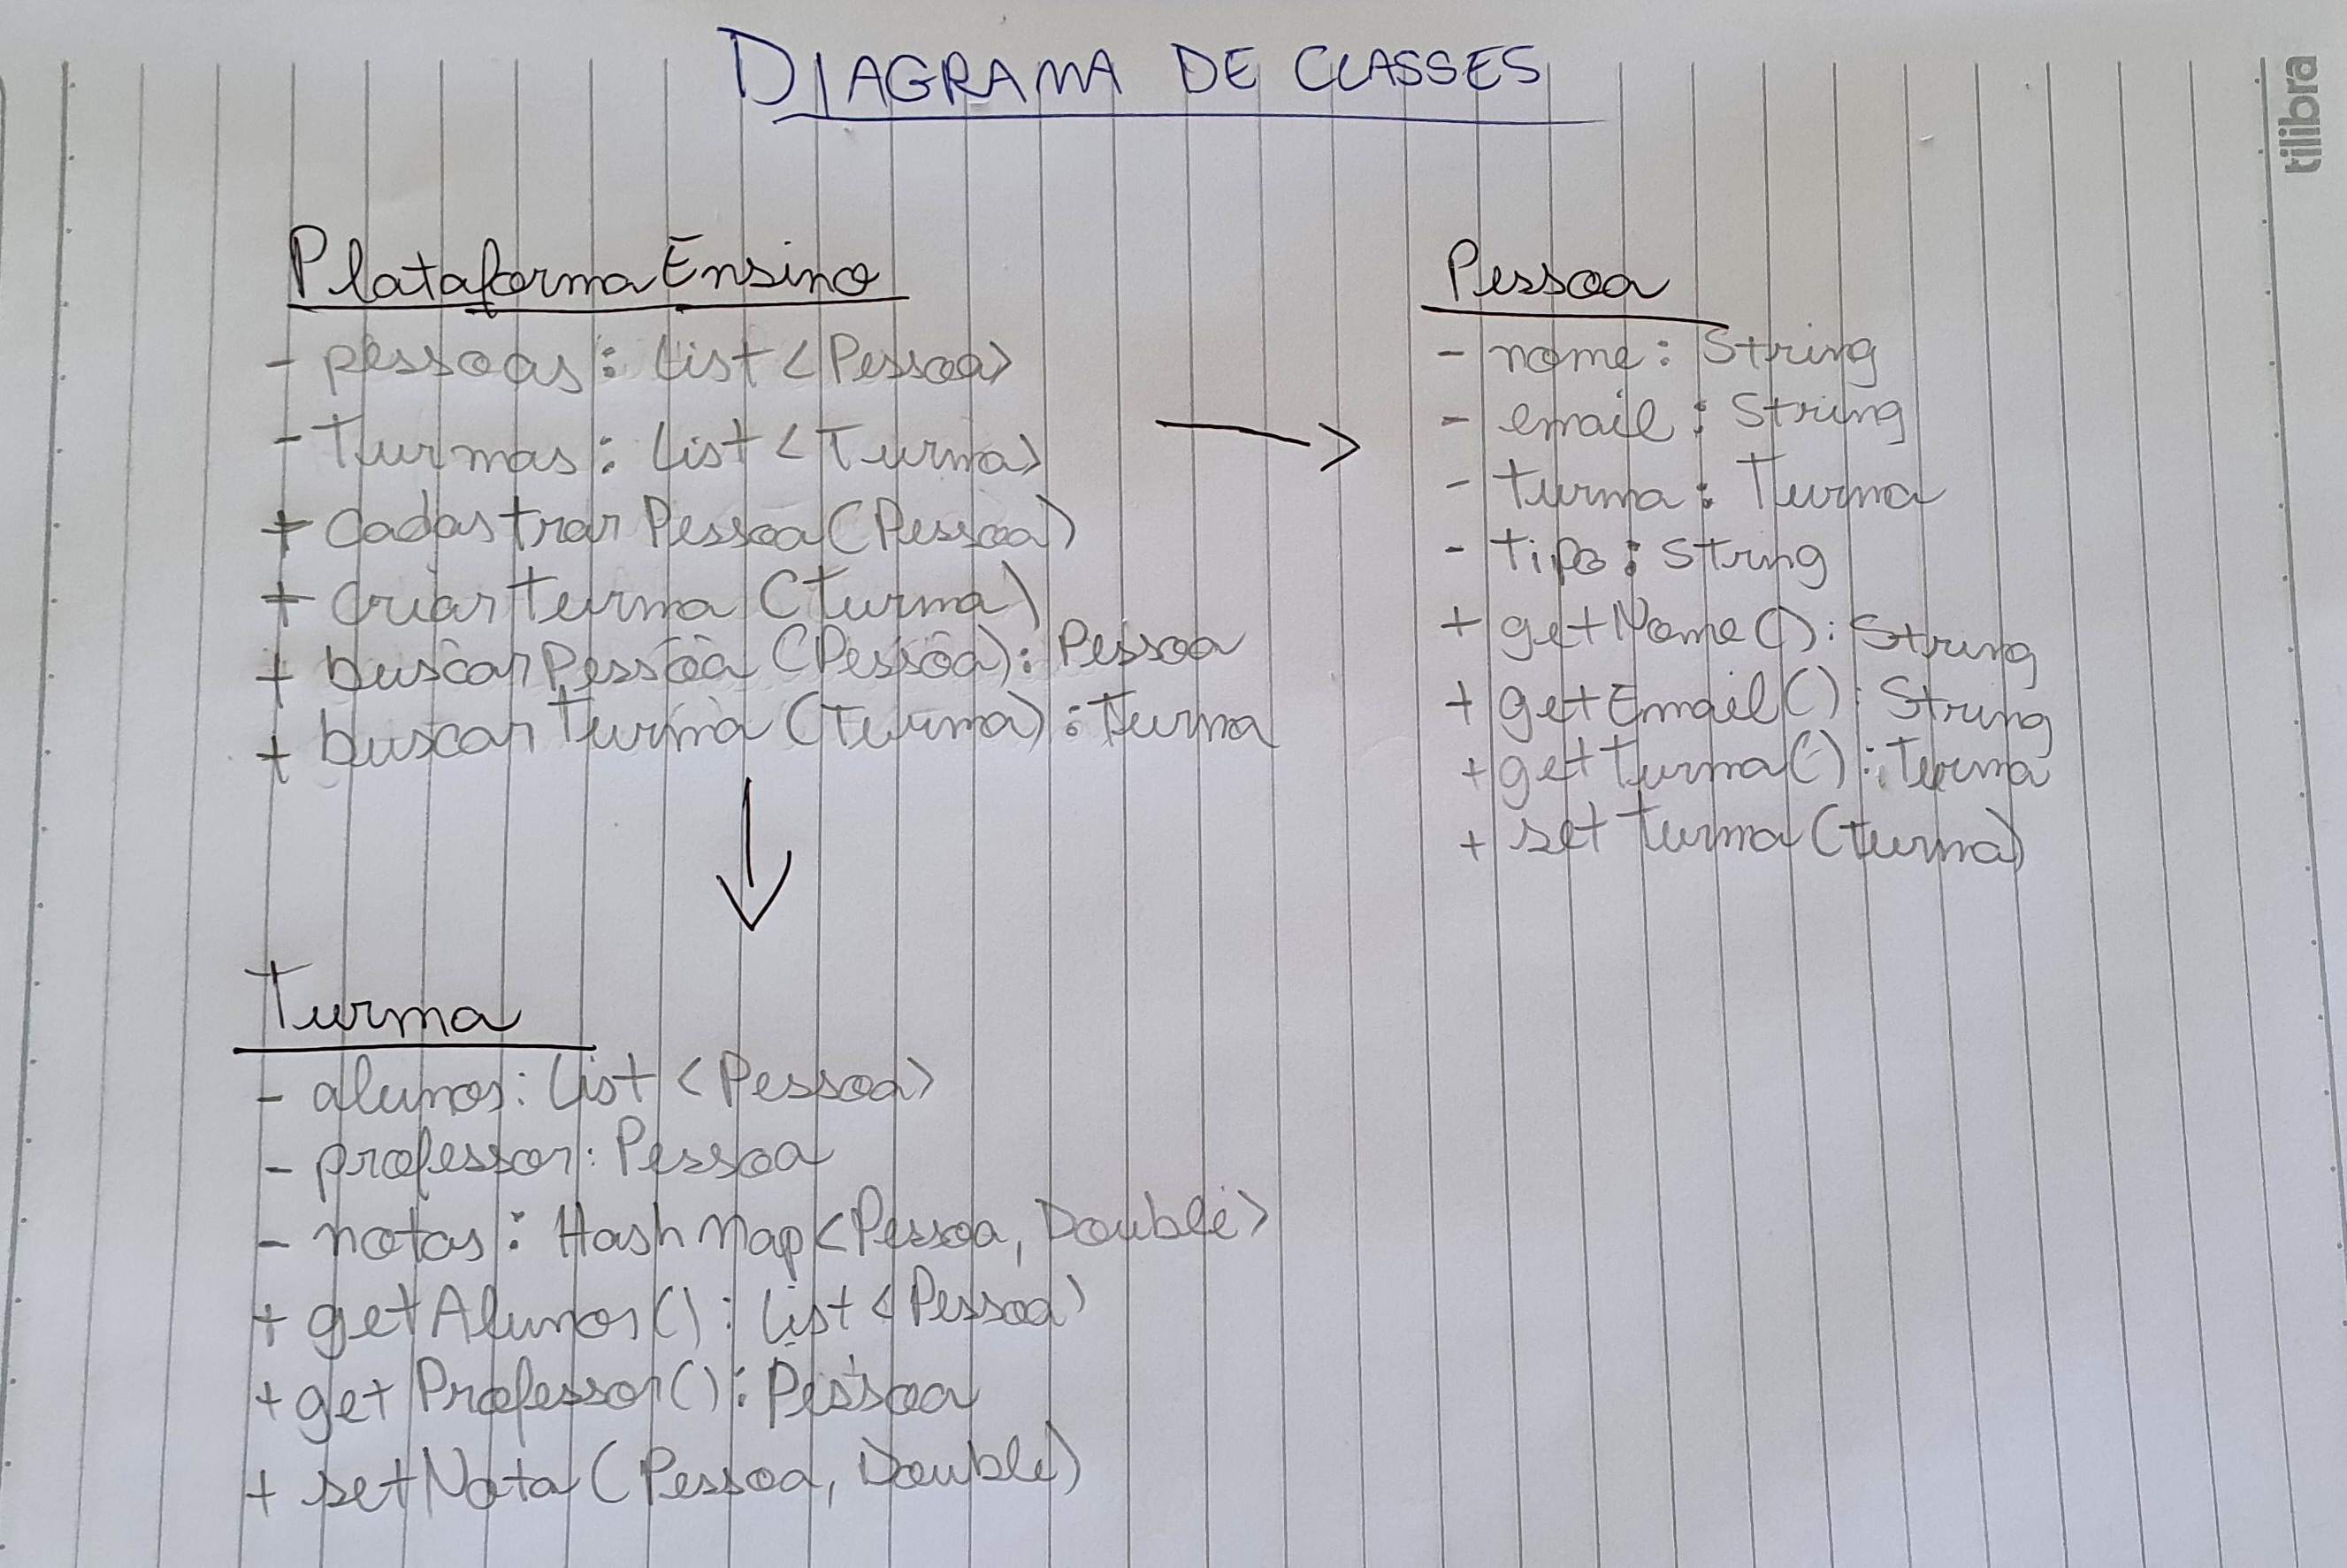 DIAGRAMA DE CLASSES
tilibra
PlataformaEnsino
- pessoas: List<Pessoa>
- Turmas: List<Turma>
+ cadastrarPessoa(Pessoa)
+ criarTurma(Turma)
+ buscarPessoa(Pessoa): Pessoa
+ buscarTurma(Turma): Turma
Pessoa
- nome: String
- email: String
- turma: Turma
- tipo: String
+ getNome(): String
+ getEmail(): String
+ getTurma(): Turma
+ setTurma(Turma)
Turma
- alunos: List<Pessoa>
- professor: Pessoa
- notas: HashMap<Pessoa, Double>
+ getAlunos(): List<Pessoa>
+ getProfessor(): Pessoa
+ setNota(Pessoa, Double)